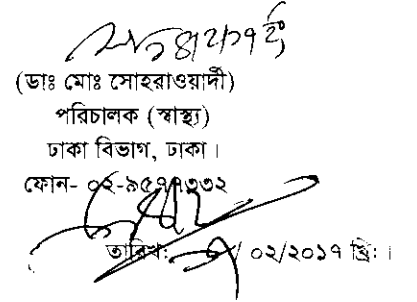 (ডাঃ মোঃ সোহরাওয়ার্দী)
পরিচালক (স্বাস্থ্য)
ঢাকা বিভাগ, ঢাকা।
ফোন- ০২-৯৫৭৭৩৩২
তারিখ: / ০২/২০১৭ খ্রি:।